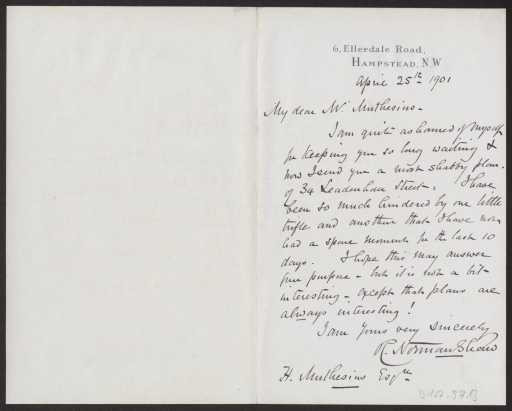 6, Ellerdale Road,
Hampstead, N.W
April 25th 1901
My dear Mr Muthesius -
I am quite ashamed of myself
for keeping you so long waiting &
now I send you a most shabby plan.
of 34 Leadenhall Street. I have
been so much hindered by one little
trifle and another that I have not
had a spare moment for the last 10
days. I hope this may answer
your purpose - but it is not a bit
interesting - except that plans are
always interesting!
I am Yours very sincerely
R. Norman Shaw
H. Muthesius Esqre